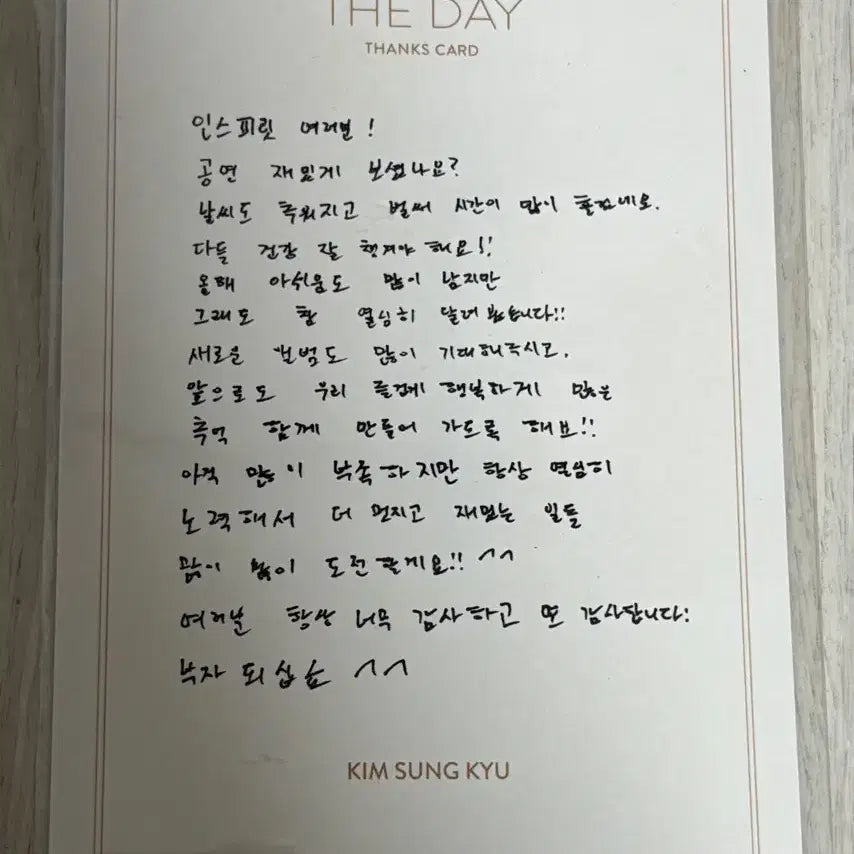 THE DAY
THANKS CARD
인스피릿 여러분!
공연 재밌게 보셨나요?
날씨도 추워지고 벌써 시간이 많이 흘렀네요.
다들 건강 잘 챙겨야 해요!!
올해 아쉬움도 많이 남지만
그래도 참 열심히 달려 봤습니다!!
새로운 앨범도 많이 기대해주시고.
앞으로도 우리 즐겁게 행복하게 많은
추억 함께 만들어 가도록 해요!!
아직 많이 부족하지만 항상 열심히
노력해서 더 멋지고 재밌는 일들
많이 많이 도전할게요!! ^^
여러분 항상 너무 감사하고 또 감사합니다!
부자 되십쇼 ^^
KIM SUNG KYU